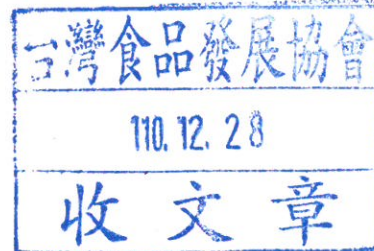 台灣食品發展協會
110.12.28
收文章